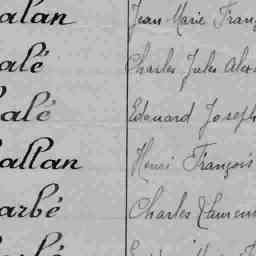 alan Jean Marie Franç
alé Charles Jules Alex
alé Edouard Joseph
allan Henri François
arbé Charles Laurent